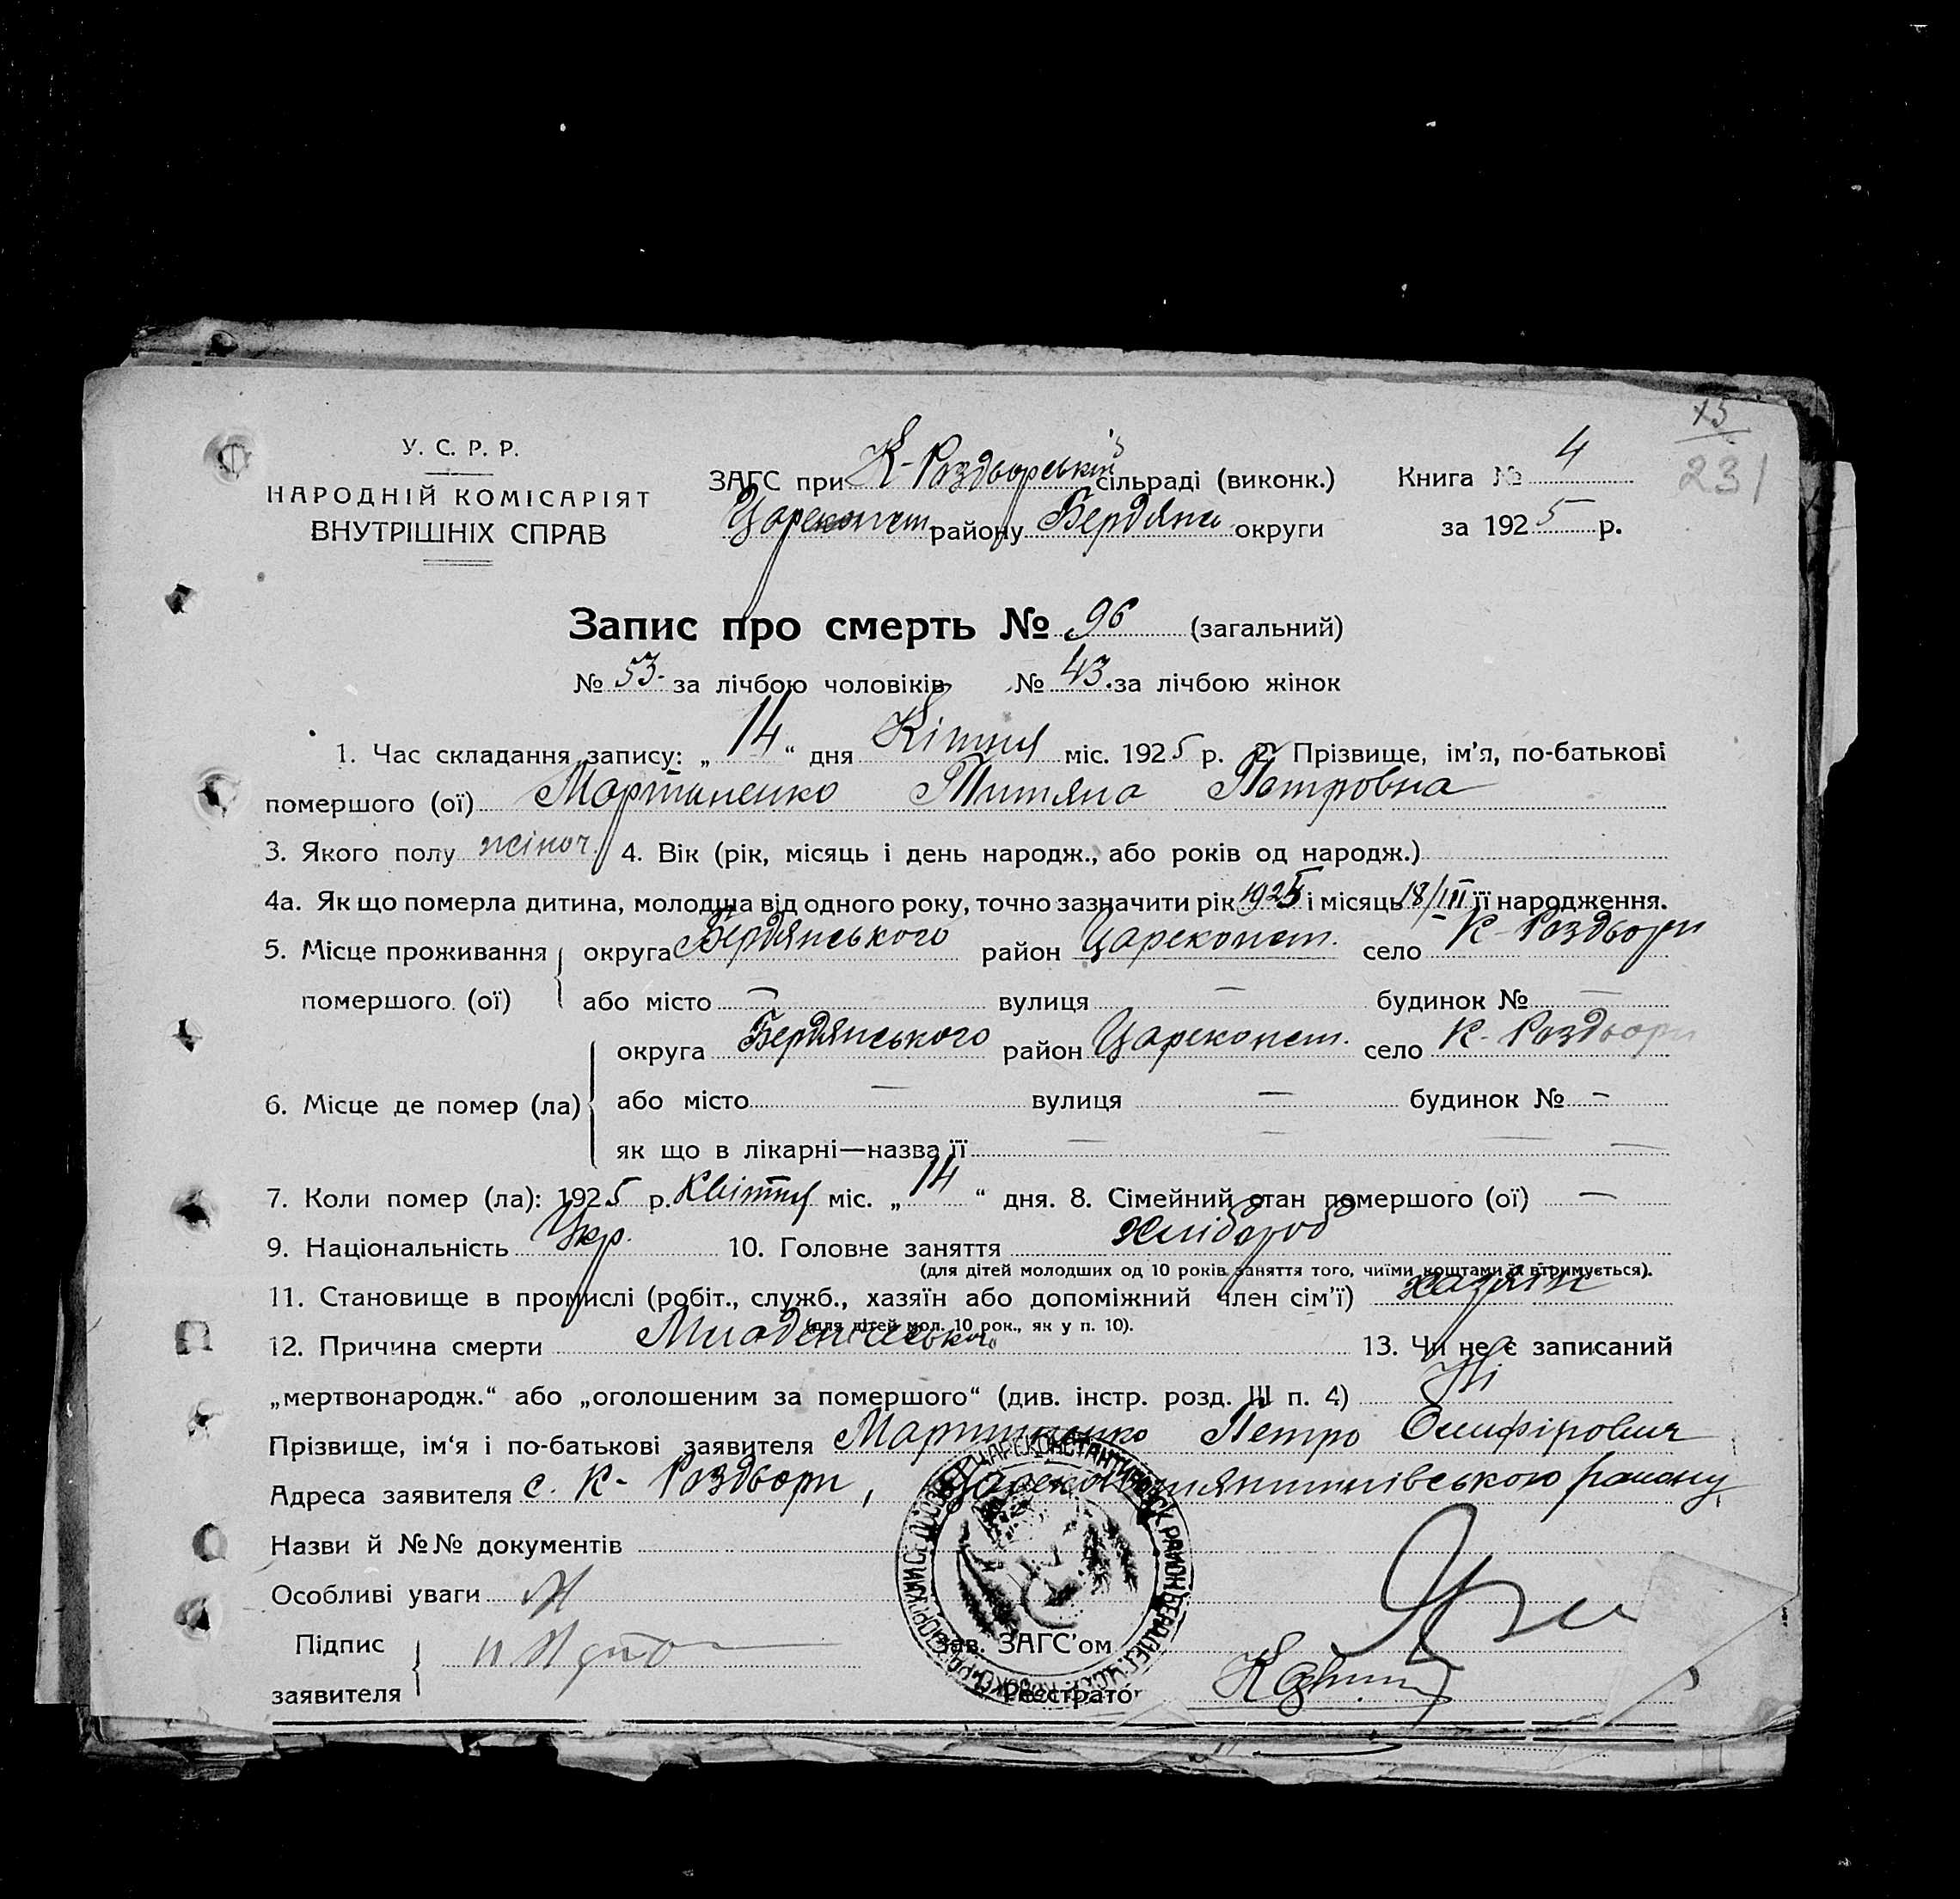 У. С. Р. Р.
НАРОДНІЙ КОМІСАРІЯТ
ВНУТРІШНІХ СПРАВ
ЗАГС при К-Роздорській сільраді (виконк.)
Цареконст. району Бердянс округи
Книга № 4
за 1925 р.
13
231
Запис про смерть № 96 (загальний)
№ 53. за лічбою чоловіків № 43. за лічбою жінок
1. Час складання запису: „14“ дня Квітня міс. 1925 р. 2. Прізвище, ім'я, по-батькові
помершого (ої) Мартиненко Титяна Петровна
3. Якого полу жіноч. 4. Вік (рік, місяць і день народж., або років од народж.)
4а. Як що померла дитина, молодша від одного року, точно зазначити рік 1925 і місяць 18/III її народження.
5. Місце проживання округа Бердянського район Цареконст. село К-Роздори
помершого (ої) або місто — вулиця — будинок № —
округа Бердянського район Цареконст. село К-Роздори
6. Місце де помер (ла) або місто — вулиця — будинок № —
як що в лікарні—назва її —
7. Коли помер (ла): 1925 р. Квітня міс. „14“ дня. 8. Сімейний стан помершого (ої) —
9. Національність Укр. 10. Головне заняття хлібороб
(для дітей молодших од 10 років заняття того, чиїми коштами їх втримується).
11. Становище в промислі (робіт., служб., хазяїн або допоміжний член сім'ї) хазяїн
(для дітей мол. 10 рок., як у п. 10).
12. Причина смерти 13. Чи не є записаний
„мертвонародж.“ або „оголошеним за помершого“ (див. інстр. розд. III п. 4) Ні
Прізвище, ім'я і по-батькові заявителя Мартиненко Петро
Адреса заявителя с. К-Роздори, району
Назви й №№ документів
Особливі уваги
Підпис
заявителя
Зав. ЗАГС'ом
Реєстратор